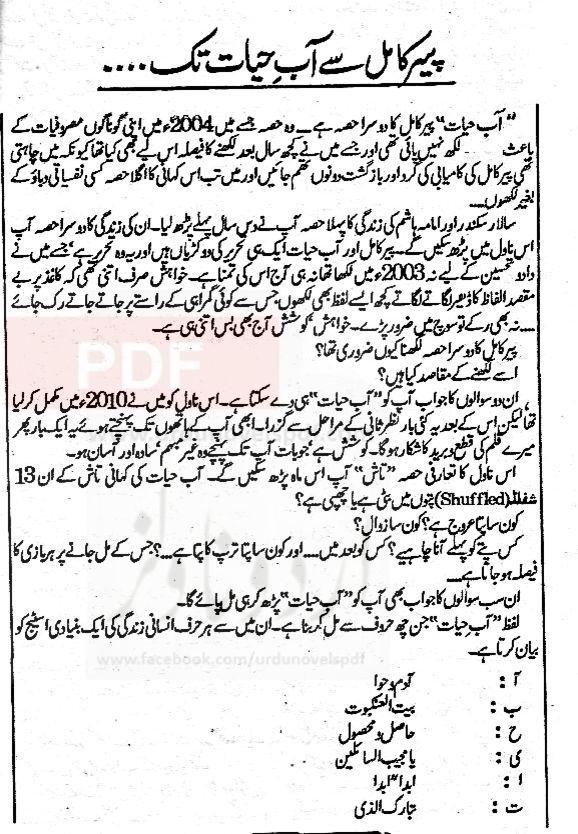 پیرِ کامل سے آبِ حیات تک....
”آبِ حیات“ پیر کامل کا دوسرا حصہ ہے۔ وہ حصہ جسے میں 2004ء میں اپنی گوناگوں مصروفیات کے
باعث لکھ نہیں پائی تھی اور جسے میں نے کچھ سال بعد لکھنے کا فیصلہ اس لیے بھی کیا تھا کیونکہ میں چاہتی
تھی پیر کامل کی کامیابی کی گرد اور بازگشت دونوں تھم جائیں اور میں تب اس کہانی کا اگلا حصہ کسی نفسیاتی دباؤ کے
بغیر لکھوں....
سالار سکندر اور امامہ ہاشم کی زندگی کا پہلا حصہ آپ نے دس سال پہلے پڑھ لیا۔ ان کی زندگی کا دوسرا حصہ آپ
اس ناول میں پڑھ سکیں گے۔ پیر کامل اور آب حیات ایک ہی تحریر کی دو کڑیاں ہیں اور یہ وہ تحریر ہے جسے میں نے
داد و تحسین کے لیے نہ 2003ء میں لکھا تھا نہ ہی آج اس کی تمنا ہے۔ خواہش صرف اتنی تھی کہ کاغذ پر بے
مقصد الفاظ کا ڈھیر لگاتے لگاتے کچھ ایسے لفظ بھی لکھوں جس سے کوئی گمراہی کے راستے پر جاتے جاتے رک جائے
.... نہ بھی رکے تو سوچ میں ضرور پڑے۔ خواہش، کوشش آج بھی بس اتنی ہی ہے۔
پیر کامل کا دوسرا حصہ لکھنا کیوں ضروری تھا؟
اسے لکھنے کے مقاصد کیا ہیں؟
ان دو سوالوں کا جواب آپ کو ”آب حیات“ ہی دے سکتا ہے۔ اس ناول کو میں نے 2010ء میں مکمل کر لیا
تھا لیکن اس کے بعد یہ کئی بار نظر ثانی کے مراحل سے گزرا۔ ابھی آپ کے ہاتھوں تک پہنچتے ہوئے یہ ایک بار پھر
میرے قلم کی قطع و برید کا شکار ہو گا۔ کوشش ہے، جو بات آپ تک پہنچے وہ غیر مبہم، سادہ اور آسان ہو۔
اس ناول کا تعارفی حصہ ”تاش“ آپ اس ماہ پڑھ سکیں گے۔ آب حیات کی کہانی تاش کے ان 13
شفلڈ (Shuffled) پتوں میں بٹی ہے یا چھپی ہے؟
کون سا پتا عروج ہے؟ کون سا زوال؟
کس پتے کو پہلے آنا چاہیے؟ کس کو بعد میں.... اور کون سا پتا ترپ کا پتا ہے....؟ جس کے مل جانے پر ہر بازی کا
فیصلہ ہو جاتا ہے....
ان سب سوالوں کا جواب بھی آپ کو ”آب حیات“ پڑھ کر ہی مل پائے گا۔
لفظ ”آب حیات“ جن چھ حروف سے مل کر بنا ہے۔ ان میں سے ہر حرف انسانی زندگی کی ایک بنیادی اسٹیج کو
بیان کرتا ہے۔
آ : آدم و حوا
ب : بیت العنکبوت
ح : حاصل و محصول
ی : یا مجیب السائلین
ا : ابداً ابدا
ت : تبارک الذی
PDF
اردو ناولز
www.facebook.com/urdunovelspdf